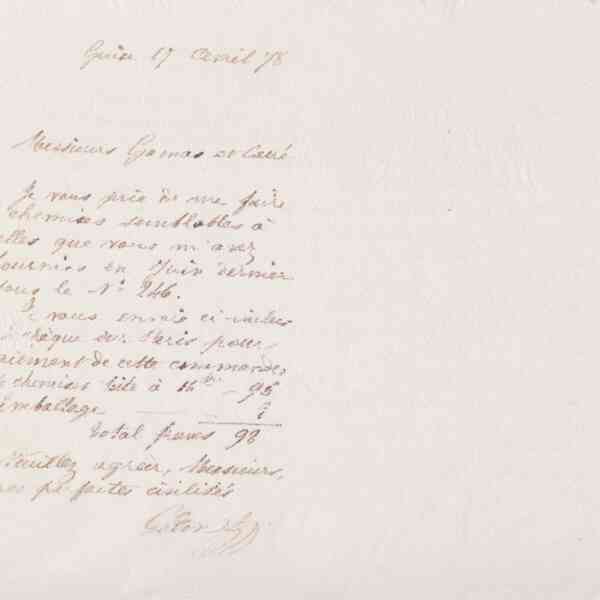 17 Avril 78
Messieurs Gamas et Carré
Je vous prie de me faire
chemises semblables à
elles que vous m'avez
fournies en Juin dernier
sous le No 246.
Je vous envoie ci-inclus
chèque sur Paris pour
aiement de cette commande
chemises toile à 16
Emballage
total francs 98
Veuillez agréer, Messieurs,
mes parfaites civilités